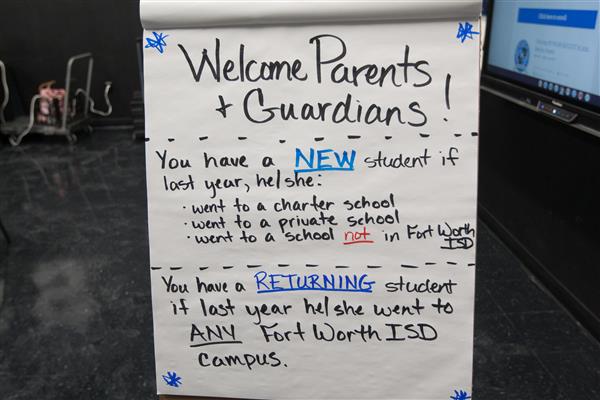 Welcome Parents
+ Guardians!
You have a NEW student if
last year, he/she:
· went to a charter school
· went to a private school
· went to a school not in Fort Worth
ISD
You have a RETURNING student
if last year he/she went to
ANY Fort Worth ISD
campus.